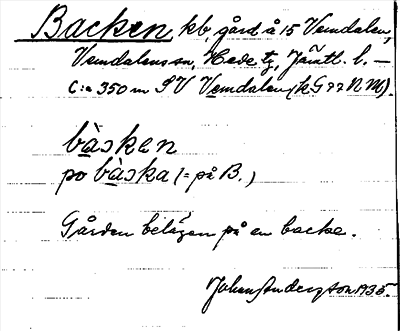 Backen, kb, gård å 15 Vemdalen,
Vemdalens sn, Hede tg, Jämtl. l. —
C:a 350 m SV Vemdalen (k G 77 N M).
bàsken
po bàska (= på B.)
Gården belägen på en backe.
Johan Anderzton 1935.